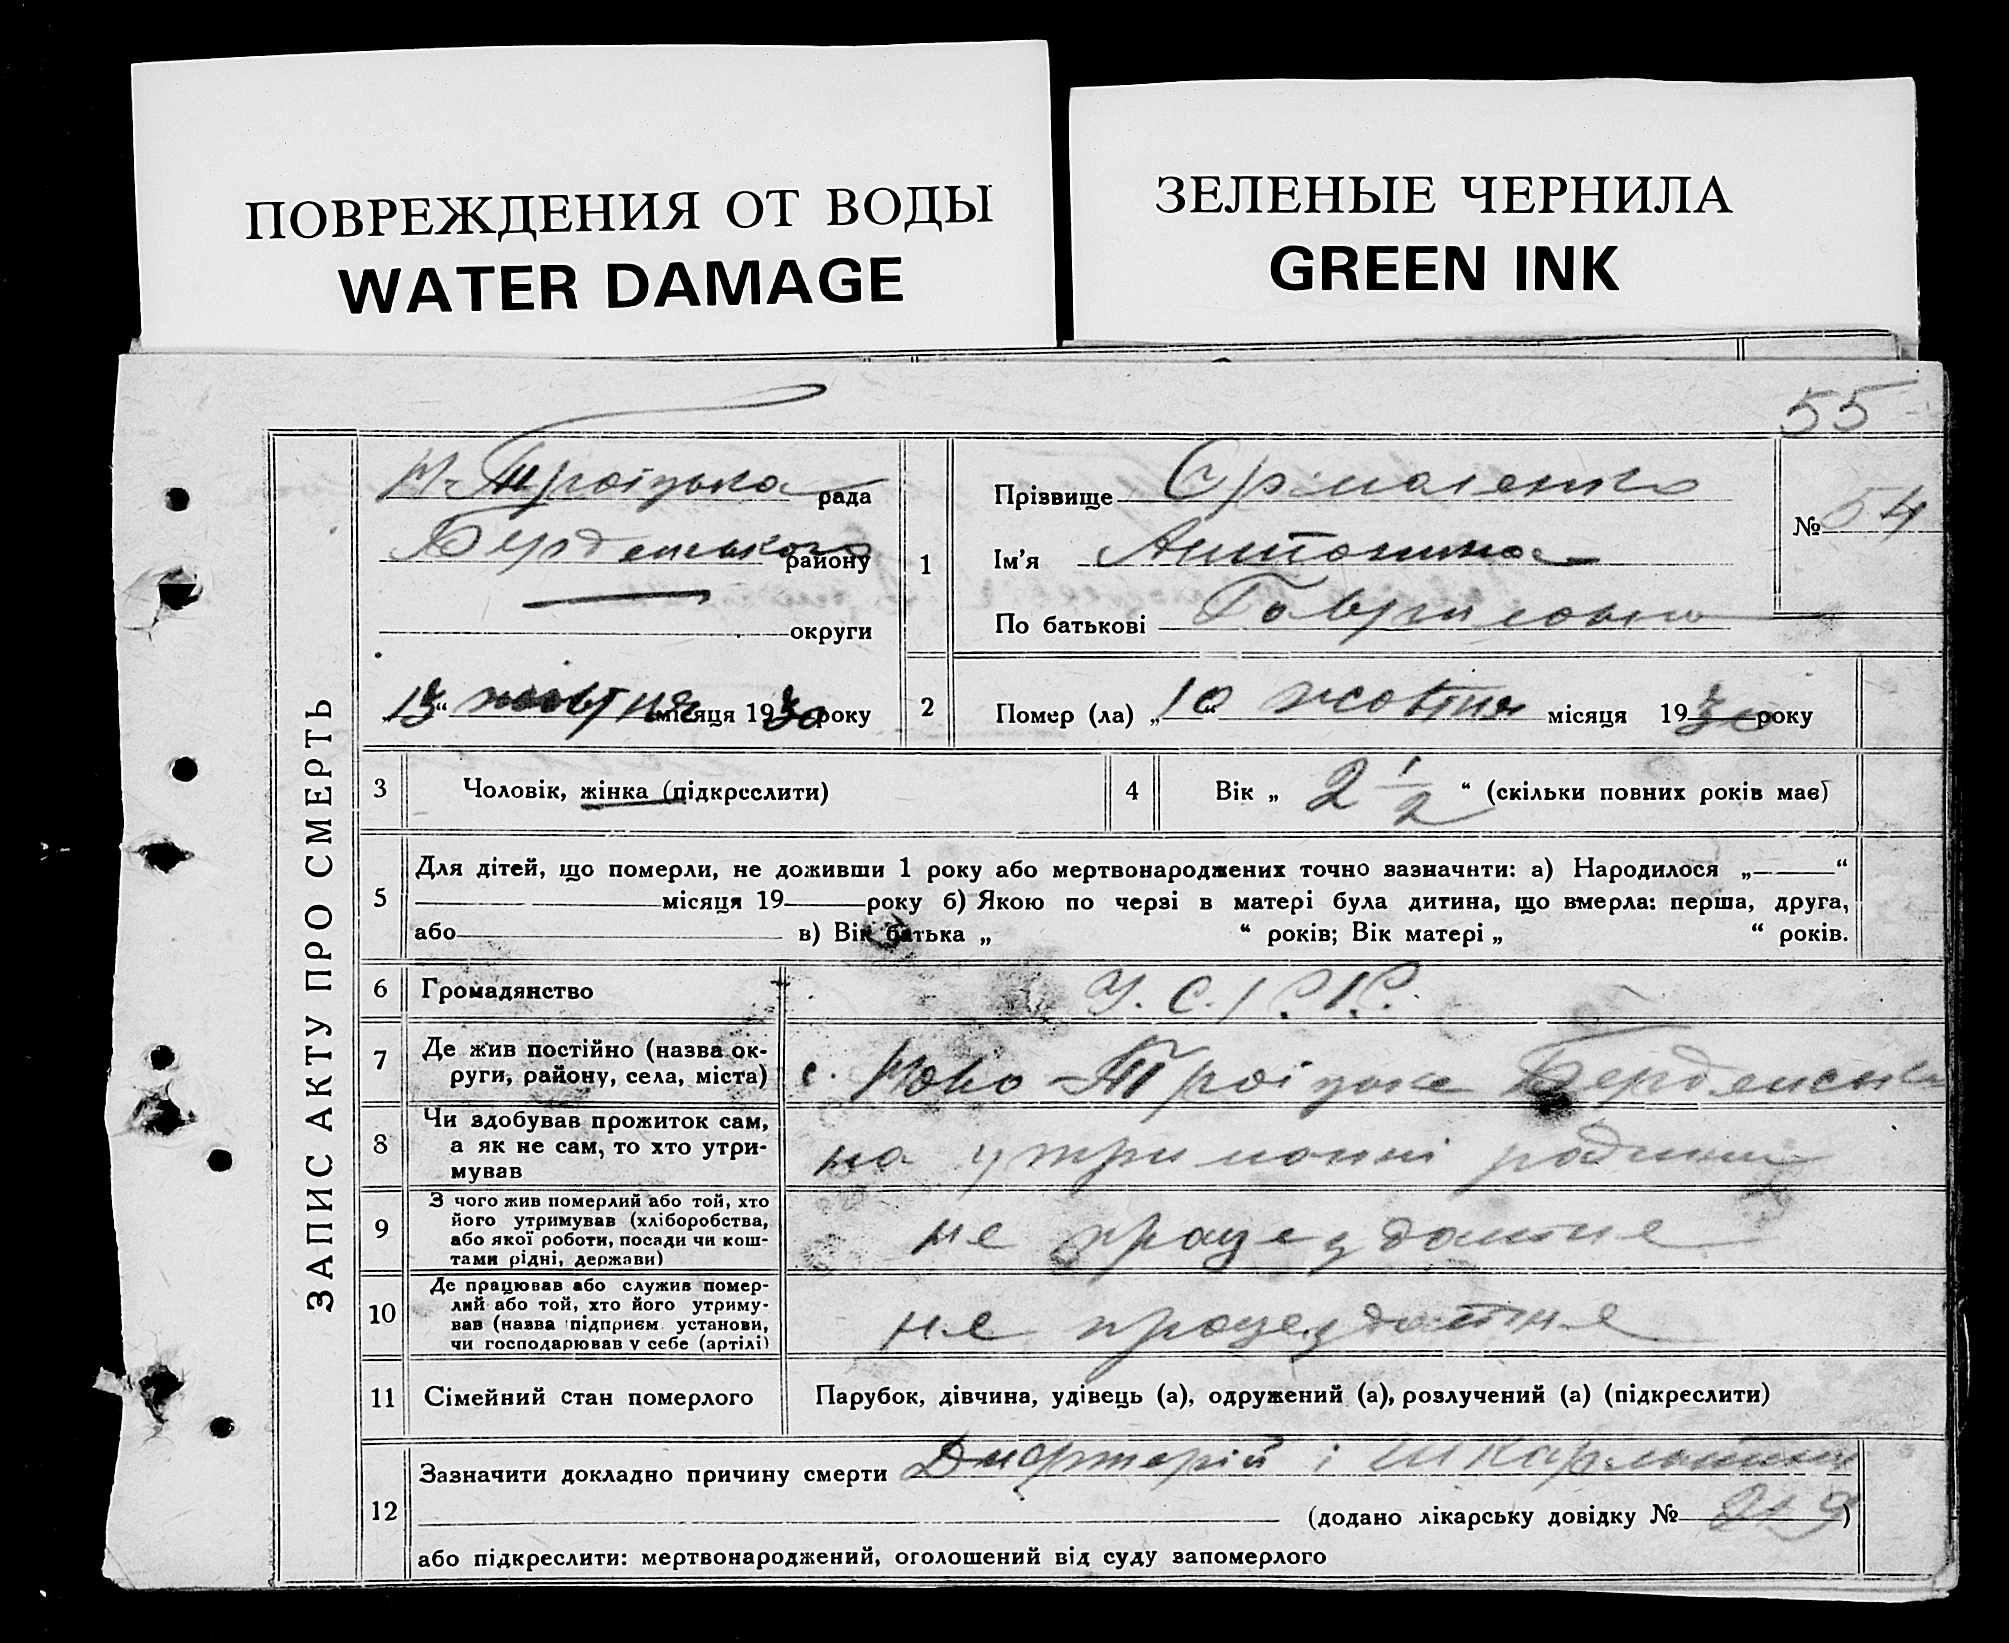 ПОВРЕЖДЕНИЯ ОТ ВОДЫ
WATER DAMAGE
ЗЕЛЕНЫЕ ЧЕРНИЛА
GREEN INK
55
ЗАПИС АКТУ ПРО СМЕРТЬ
Н-Троїцька рада
Бердянського району
округи
13 “ жовтня місяця 1930 року
1
Прізвище Єрмоленко
Ім'я Антонина
По батькові Гавриловна
№ 54
2 Помер (ла) „ 10 “ жовтня місяця 1930 року
3 Чоловік, жінка (підкреслити)
4 Вік „ 2 1/2 “ (скільки повних років має)
5 Для дітей, що померли, не доживши 1 року або мертвонароджених точно зазначити: а) Народилося „ “
місяця 19 року б) Якою по черзі в матері була дитина, що вмерла: перша, друга,
або в) Вік батька „ “ років; Вік матері „ “ років.
6 Громадянство У.С.Р.Р.
7 Де жив постійно (назва ок-
руги, району, села, міста) с. Ново-Троїцьке
8 Чи здобував прожиток сам,
а як не сам, то хто утри-
мував на утриманні родини
9 З чого жив померлий або той, хто
його утримував (хліборобства,
або якої роботи, посади чи кош-
тами рідні, держави) не працездатне
10 Де працював або служив помер-
лий або той, хто його утриму-
вав (назва підприєм. установи,
чи господарював у себе (артілі) не працездатне
11 Сімейний стан померлого Парубок, дівчина, удівець (а), одружений (а), розлучений (а) (підкреслити)
12 Зазначити докладно причину смерти Дифтерій і шкарлатина
(додано лікарську довідку № 219)
або підкреслити: мертвонароджений, оголошений від суду запомерлого